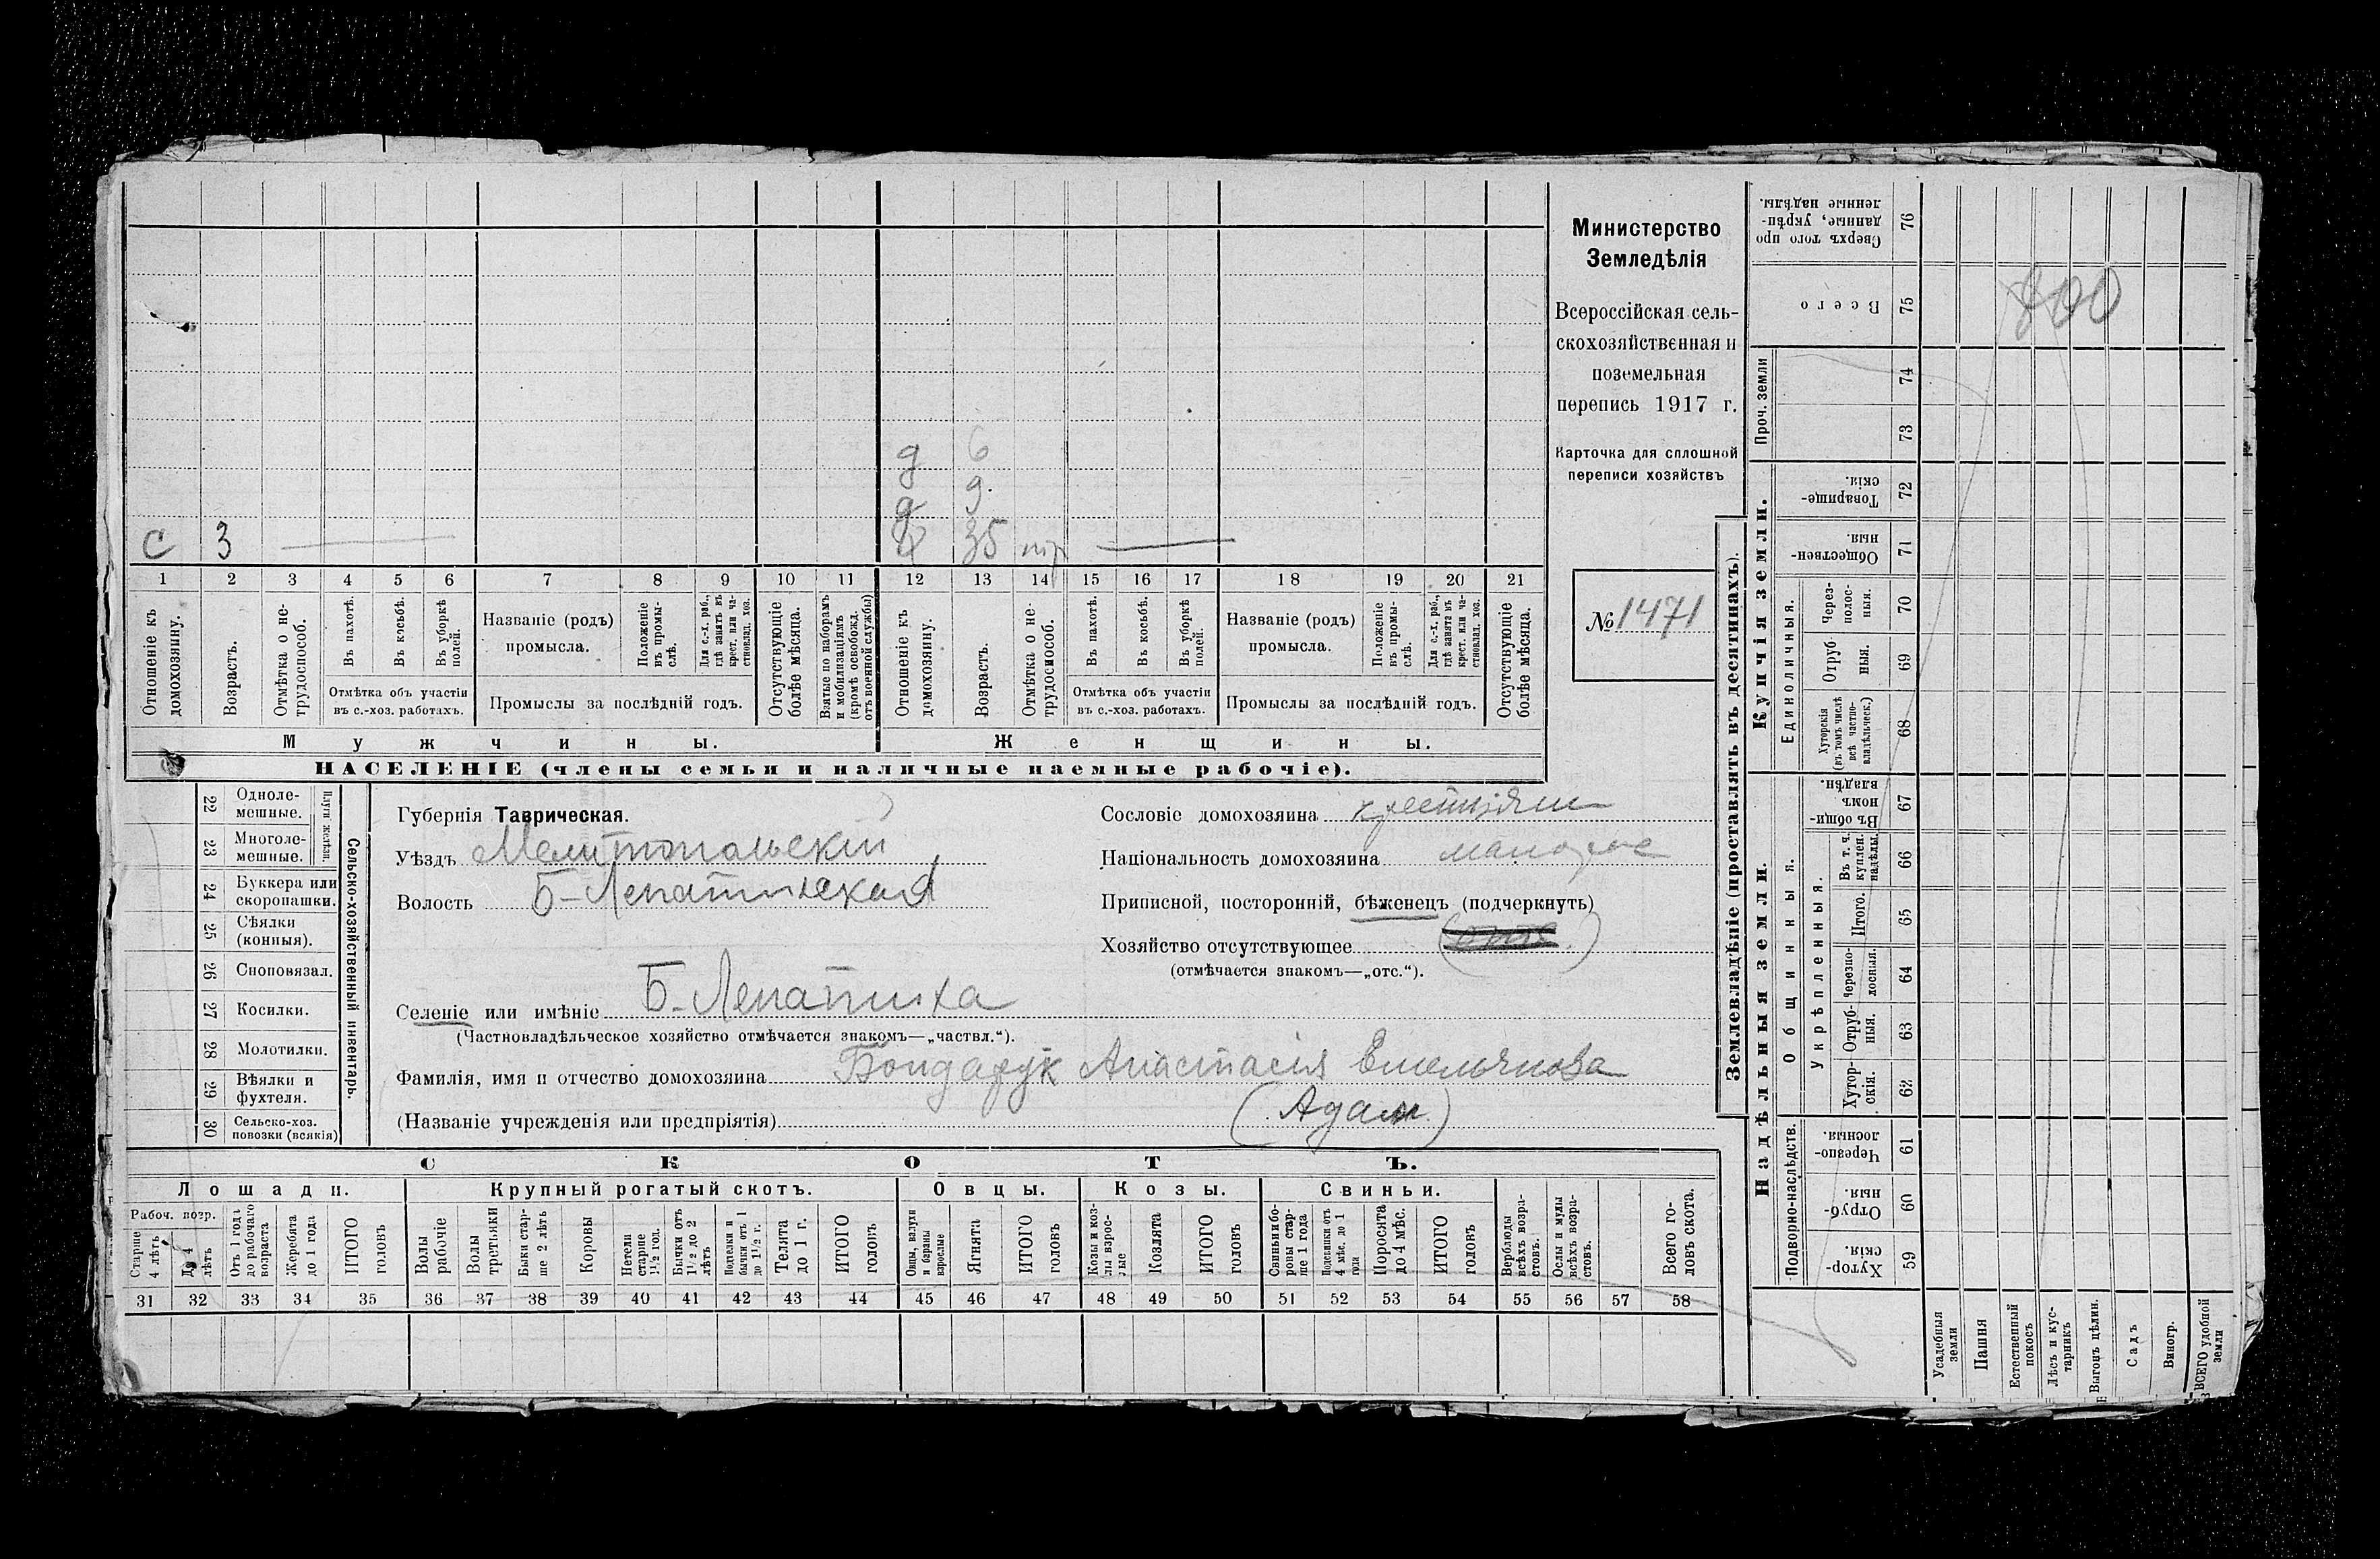 Министерство
Земледѣлія
Всероссійская сель-
скохозяйственная и
поземельная
перепись 1917 г.
Карточка для сплошной
переписи хозяйствъ
№ 1471
д 6
д 9.
С 3
Х 35
1 2 3 4 5 6 7 8 9 10 11 12 13 14 15 16 17 18 19 20 21
Отношеніе къ домохозяину.
Возрастъ.
Отмѣтка о не-трудоспособ.
Въ пахотѣ.
Въ косьбѣ.
Въ уборкѣ полей.
Отмѣтка объ участіи
въ с.-хоз. работахъ.
Названіе (родъ)
промысла.
Положеніе въ промы-слѣ.
Для с.-х. раб., гдѣ занятъ въ крест. или ча-стновлад. хоз.
Промыслы за послѣдній годъ.
Отсутствующіе болѣе мѣсяца.
Взятые по наборамъ и мобилизаціямъ (кромѣ освобожд. отъ военной службы)
Отношеніе къ домохозяину.
Возрастъ.
Отмѣтка о не-трудоспособ.
Въ пахотѣ.
Въ косьбѣ.
Въ уборкѣ полей.
Отмѣтка объ участіи
въ с.-хоз. работахъ.
Названіе (родъ)
промысла.
Положеніе въ промы-слѣ.
Для с.-х. раб., гдѣ занята въ крест. или ча-стновлад. хоз.
Промыслы за послѣдній годъ.
Отсутствующіе болѣе мѣсяца.
Мужчины.
Женщины.
НАСЕЛЕНІЕ (члены семьи и наличные наемные рабочіе).
Сельско-хозяйственный инвентарь.
Плуги желѣзн.
22 Одноле-мешные.
23 Многоле-мешные.
24 Буккера или скоропашки.
25 Сѣялки (конныя).
26 Сноповязал.
27 Косилки.
28 Молотилки.
29 Вѣялки и фухтеля.
30 Сельско-хоз. повозки (всякія)
Губернія Таврическая.
Уѣздъ Мелитопольскій
Волость Б-Лепатихская
Селеніе или имѣніе Б. Лепатиха
(Частновладѣльческое хозяйство отмѣчается знакомъ—„частвл.“).
Фамилія, имя и отчество домохозяина Бондарук Анастасія Емельянова
(Названіе учрежденія или предпріятія) (Адам)
Сословіе домохозяина
Національность домохозяина
Приписной, посторонній, бѣженецъ (подчеркнуть)
Хозяйство отсутствующее
(отмѣчается знакомъ—„отс.“).
СКОТЪ.
Лошади.
Крупный рогатый скотъ.
Овцы.
Козы.
Свиньи.
Рабоч. возр.
Старше 4 лѣтъ
До 4 лѣтъ
Отъ 1 года до рабочаго возраста
Жеребята до 1 года
ИТОГО головъ
Волы рабочіе
Волы третьяки
Быки стар-ше 2 лѣтъ
Коровы
Нетели старше 1½ год.
Бычки отъ 1½ до 2 лѣтъ
Подтелки и бычки отъ 1 до 1½ г.
Телята до 1 г.
ИТОГО головъ
Овцы, валухи и бараны взрослые
Ягнята
ИТОГО головъ
Козы и коз-лы взрос-лые
Козлята
ИТОГО головъ
Свиньи и бо-ровы стар-ше 1 года
Подсвинки отъ 4 мѣс. до 1 года
Поросята до 4 мѣс.
ИТОГО головъ
Верблюды всѣхъ возра-стовъ.
Ослы и мулы всѣхъ возра-стовъ.
Всего го-ловъ скота.
31 32 33 34 35 36 37 38 39 40 41 42 43 44 45 46 47 48 49 50 51 52 53 54 55 56 57 58
Землевладѣніе (проставлять въ десятинахъ).
Надѣльныя земли.
Купчія земли.
Проч. земли
Подворно-наслѣдств.
Общинныя.
Укрѣпленныя.
Единоличныя.
Сверхъ того про
данные, укрѣп-
ленные надѣлы. 76
Всего 75
74
73
Товарище-скія. 72
Обществен-ныя. 71
Через-полос-ныя. 70
Отруб-ныя. 69
Хуторскія (въ томъ числѣ всѣ частно-владѣльческ.) 68
Въ общи-номъ владѣн. 67
Въ т. ч. куплен. надѣлы. 66
Итого. 65
Черезпо-лосныя. 64
Отруб-ныя. 63
Хутор-скія. 62
Черезпо-лосныя. 61
Отруб-ныя. 60
Хутор-скія. 59
Усадебныя земли
Пашня
Естественный покосъ
Лѣсъ и кус-тарникъ
Выгонъ цѣлин.
Садъ
Виногр.
ВСЕГО удобной земли